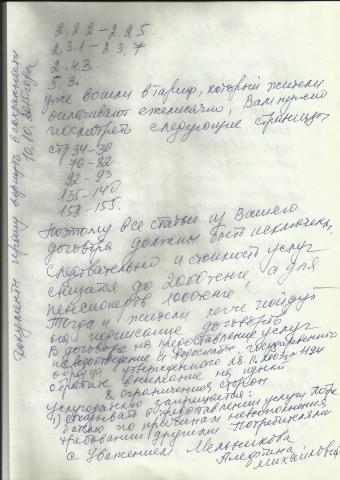 2.2.2 – 2.2.5
2.3.1 – 2.3.7
2.4.3.
5.3.
уже вошли в тариф, который жители
оплачивают ежемесячно, Вам нужно
посмотреть следующие страницы
стр 34-38
76-82
92-93
135-140
153-155.
Поэтому все статьи из Вашего
договора должны быть исключены,
следвательно и стоимость услуг
снизится до 2000 тенге, а для
пенсионеров 1000 тенге,
Тогда и жители легче пойдут
на подписание договора
В договоре на предоставление услуг
обратите внимание на пункт
8. ограничения сторон
Услугодателю запрещается:
1) отказывать в предоставлении услуги потре
бителю по причинам невыполнения
требований другими потребителями
С Уважением Мельникова
Алефтина
Михайловна
Документы прошу вернуть в сохранности
10.10.2015 года